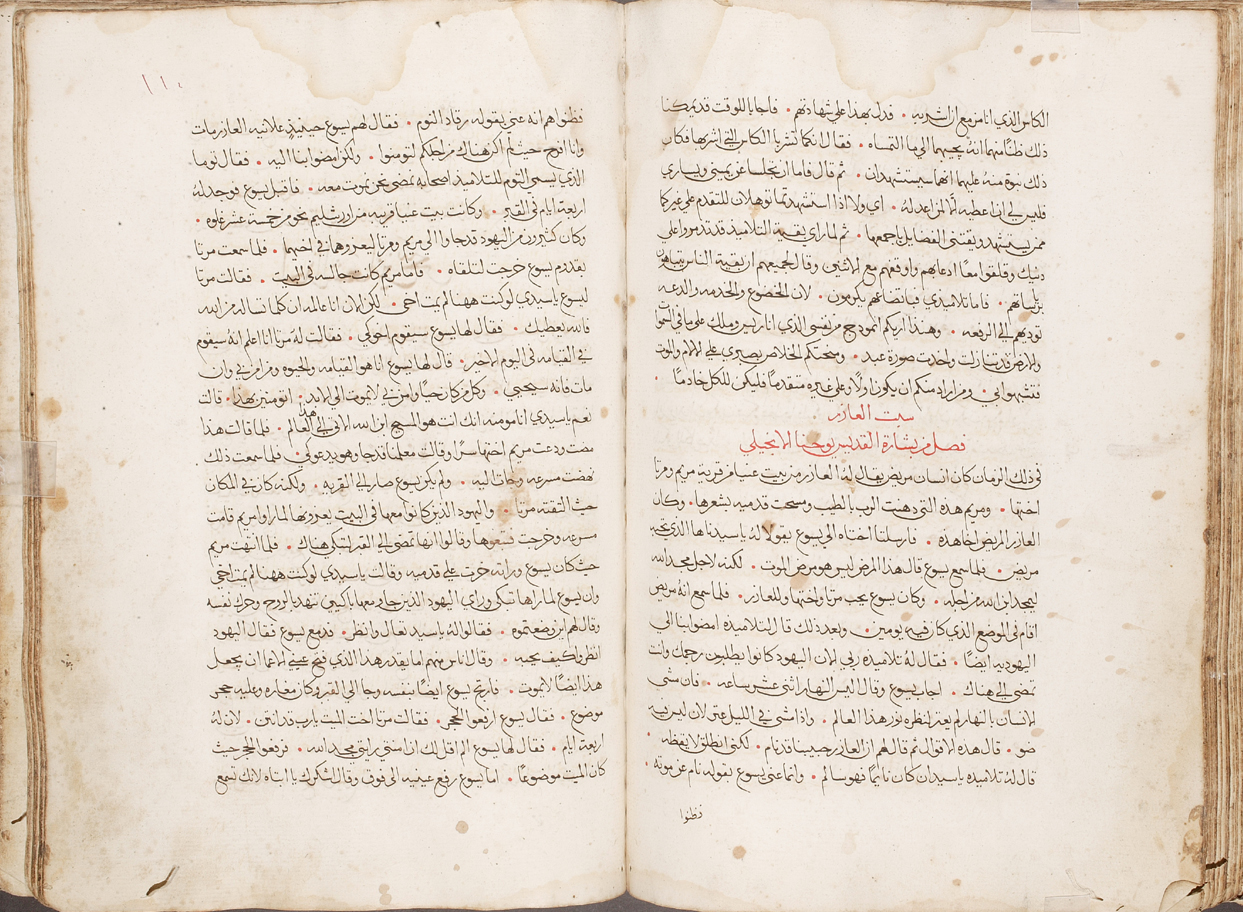 الكاس الذي انا مزمع ان اشربه • فدل بهذا علي شهادتهم • فاجابا للوقت قد يمكننا
ذلك ظنًا منهما انهُ يجيبهما الي ما التمساه • فقال انكما تشربا الكاس التي اشربها فكان
ذلك نبوة منهُ عليهما انهما سيستشهدان • ثم قال فاما ان تجلسا عن يميني ويساري
فليس لي ان اعطيه الّا لمن اعد لهُ • اي ولا اذا استشهدتما توهلان للتقدم علي غيركما
ممن يستشهد ويقتني الفضايل باجمعها • ثم لما راي بقية التلاميذ قد تذمروا علي
دنيك وقلقوا معًا ادعاهم واوقفهم مع الاثنين وقال لجميعهم ان بقية الناس يتباهون
برئاساتهم • فاما تلاميذي فباتضاعهم يكرمون • لان الخضوع والخدمه والدعه
تودبهم الي الرفعه • وهنذا اريكم انموذج من نفسي الذي انا رييس وملك علي ما في السموات
والارض قد تنازلت واخذت صورة عبد • ومنحتكم الخلاص بصبري علي الالام والموت
فتشبهوا بي • ومن اراد منكم ان يكون اولًا وعلي غيره متقدمًا فليكن للكل خادمًا •
سبت العازر
فصل من بشارة القديس يوحنا الانجيلي
في ذلك الزمان كان انسان مريض يقال لهُ العازر من بيت عنيا من قرية مريم ومرتا
اختها • ومريم هذه التي دهنت الرب بالطيب ومسحت قدميه بشعرها • وكان
العازر المريض اخا هذه • فارسلتا اختاه الي يسوع يقولا لهُ يا سيدنا ها الذي تحبه
مريض • فلما سمع يسوع قال هذا المرض ليس هو مرض الموت • لكنه لاجل مجد الله
ليتمجد ابن الله من اجله • وكان يسوع يحب مرتا واختها وللعازر • فلما سمع انهُ مريض
اقام في الموضع الذي كان فيه يومين • وبعد ذلك قال لتلاميذه امضوا بنا الي
اليهوديه ايضًا • فقال لهُ تلاميذه ربي الان اليهود كانوا يطلبون رجمك وانت
تمضي الي هناك • اجاب يسوع وقال اليس النهار اثني عشر ساعه • فان مشي
الانسان بالنهار لم يعثر لنظره نور هذا العالم • واذا مشي في الليل عثر لان ليس فيه
ضو • قال هذه الاقوال ثم قال لهم ان العازر حبيبنا قد نام • لكني انطلق لايقظه •
قال لهُ تلاميذه يا سيد ان كان نايمًا فهو سالم • وانما عني يسوع بقوله نام عن موته •
فظنوا
١١٠
فظنوا هم انه عني بقوله رقاد النوم • فقال لهم يسوع حينيذٍ علانيه العازر مات
وانا افرح حيث لم اكن هناك من اجلكم لتومنوا • ولكن امضوا بنا اليه • فقال توما
الذي يسمي التوم للتلاميذ اصحابه نمضي نحن نموت معه • فاقبل يسوع فوجد لهُ
اربعة ايام في القبر • وكانت بيت عنيا قريبه من اورشليم نحو من خمسة عشر غلوه •
وكان كثيرون من اليهود قد جاوا الي مريم ومرتا ليعزوهما في اخيهما • فلما سمعت مرتا
بقدوم يسوع خرجت لتلقاه • فاما مريم كانت جالسه في البيت • فقالت مرتا
ليسوع يا سيدي لو كنت ههنا لم يمت اخي • لكن الان انا عالمه ان كلما تساله من الله
فالله يعطيك • فقال لها يسوع سيقوم اخوكي • فقالت لهُ مرتا انا اعلم انهُ سيقوم
في القيامه في اليوم الاخير • قال لها يسوع انا هو القيامه والحيوه ومن امن بي وان
مات فانه سيحيي • وكل من كان حيًا وامن بي لا يموت الي الابد • اتومنين بهذا • قالت
نعم يا سيدي انا مومنه انك انت هو المسيح ابن الله الاتي الي هذا العالم • فلما قالت هذا
مضت ودعت مريم اختها سرًا وقالت معلمنا قد جا وهو يدعوكي • فلما سمعت ذلك
نهضت مسرعه وجات اليه • ولم يكن يسوع صار الي القريه • ولكنه كان في المكان
حيث التقته مرتا • واليهود الذين كانوا معها في البيت يعزونها لما راوا مريم قامت
مسرعه وخرجت فتبعوها وقالوا انها تمضي الي القبر لتبكي هناك • فلما انتهت مريم
حيث كان يسوع وراته خرت علي قدميه وقالت يا سيدي لو كنت ههنا لم يمت اخي
وان يسوع لما راها تبكي وراي اليهود الذين جاو معها باكيين تنهد بالروح وحرك نفسه
وقال لهم اين وضعتموه • فقالوا لهُ يا سيد تعال وانظر • فدمع يسوع فقال اليهود
انظروا كيف يحبه • وقال اناس منهم اما يقدر هذا الذي فتح عيني الاعما ان يجعل
هذا ايضًا لا يموت • فارتج يسوع ايضًا بنفسه وجا الي القبر وكان مغاره وعليه حجر
موضوع • فقال يسوع ارفعوا الحجر • فقالت مرتا اخت الميت يا رب قد انتن • لان لهُ
اربعة ايام • فقال لها يسوع الم اقل لك ان امنتي رايتي مجد الله • فرفعوا الحجر حيث
كان الميت موضوعًا • اما يسوع رفع عينيه الي فوق وقال اشكرك يا ابتاه لانك تسمع